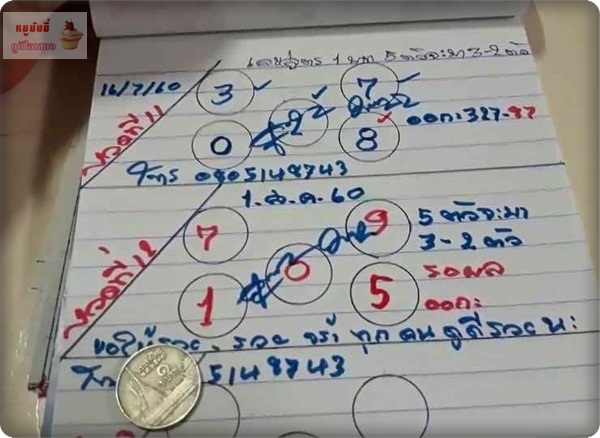 หมูมันมี่
เลขสูตร 1 บาท 5 ตัวจะมา 3-2 ตัว
16/7/60
3 7
งวดที่ 11
2
0 8
ออก 327-97
โทร 0805148743
1.ส.ค.60
7 9
5 ตัวจะมา
3-2 ตัว
งวดที่ 12
0
1 5
รอผล
ออก
ขอให้รวย, รวย จร้า ทุก คน ดูดีรวย นะ
5148743